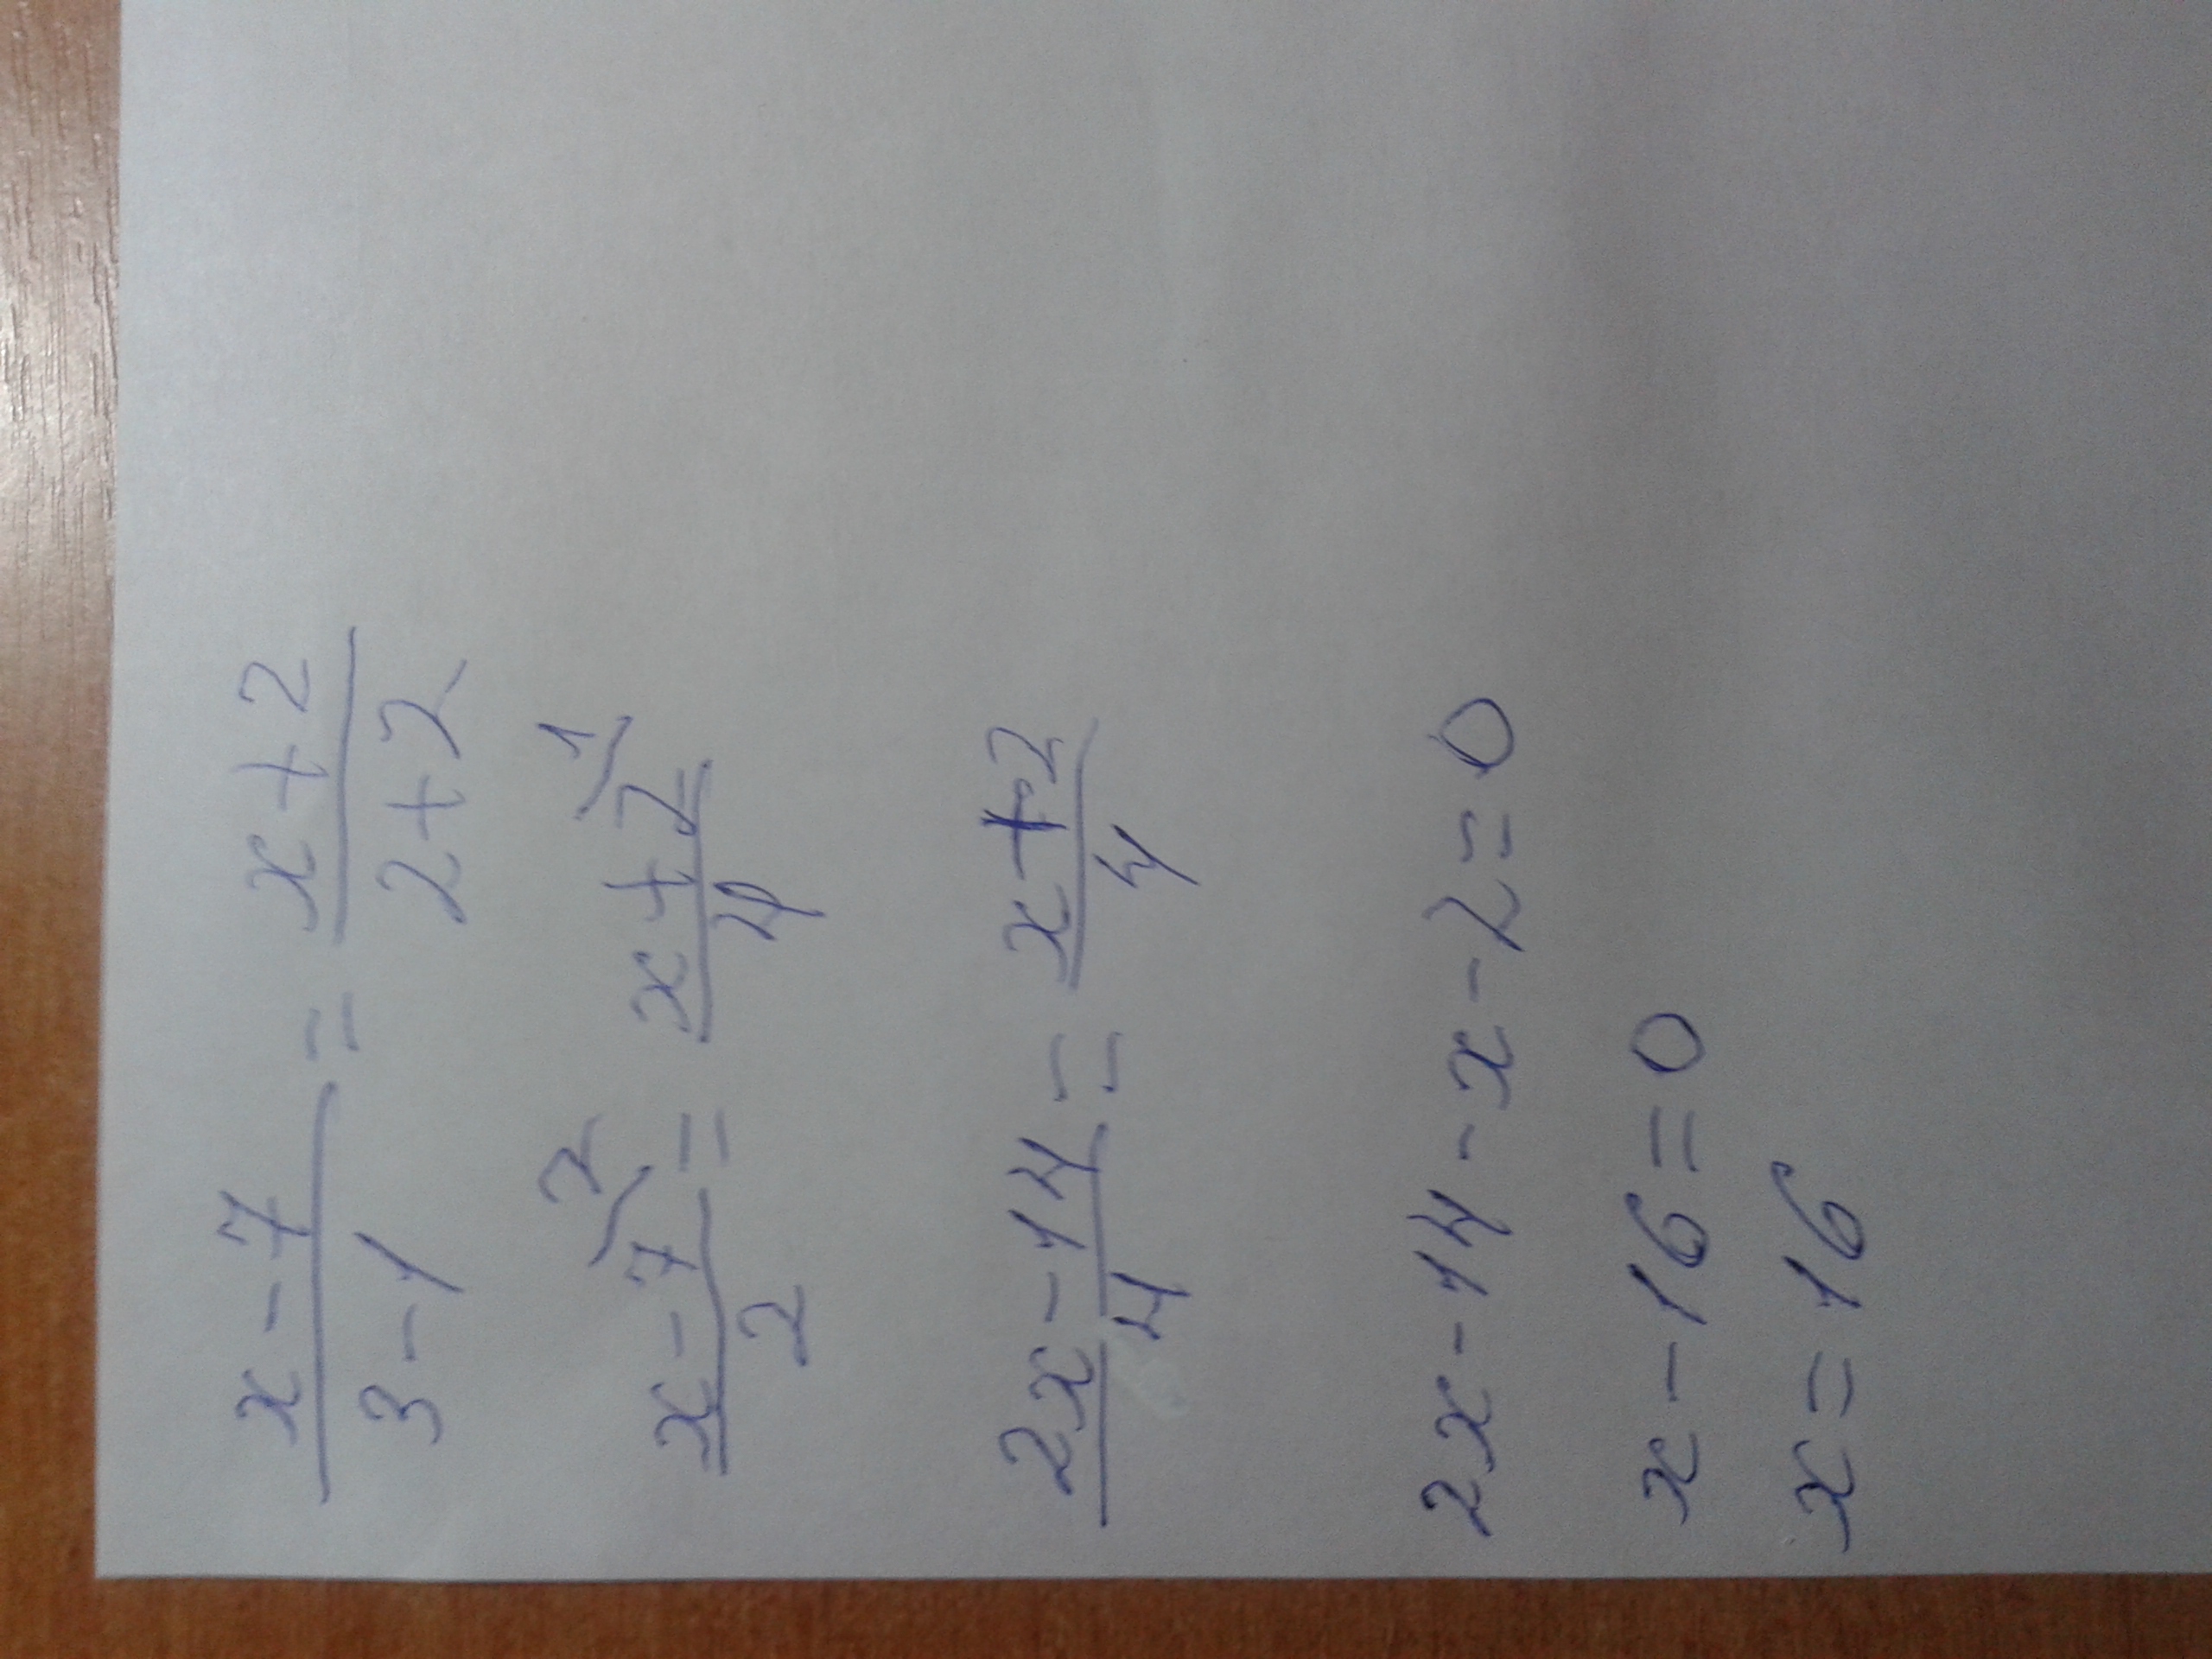 x-7/3-1 = x+2/2+2
x-7/2 ^2 = x+2/4 ^1
2x-14/4 = x+2/4
2x-14-x-2=0
x-16=0
x=16